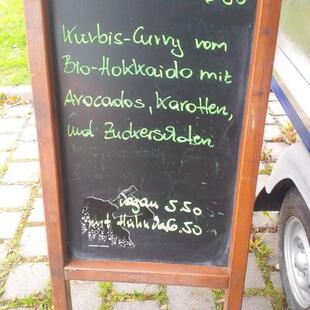 Kürbis-Curry vom
Bio-Hokkaido mit
Avocados, Karotten,
und Zuckerschoten
vegan 5.50
mit Huhn 6.50